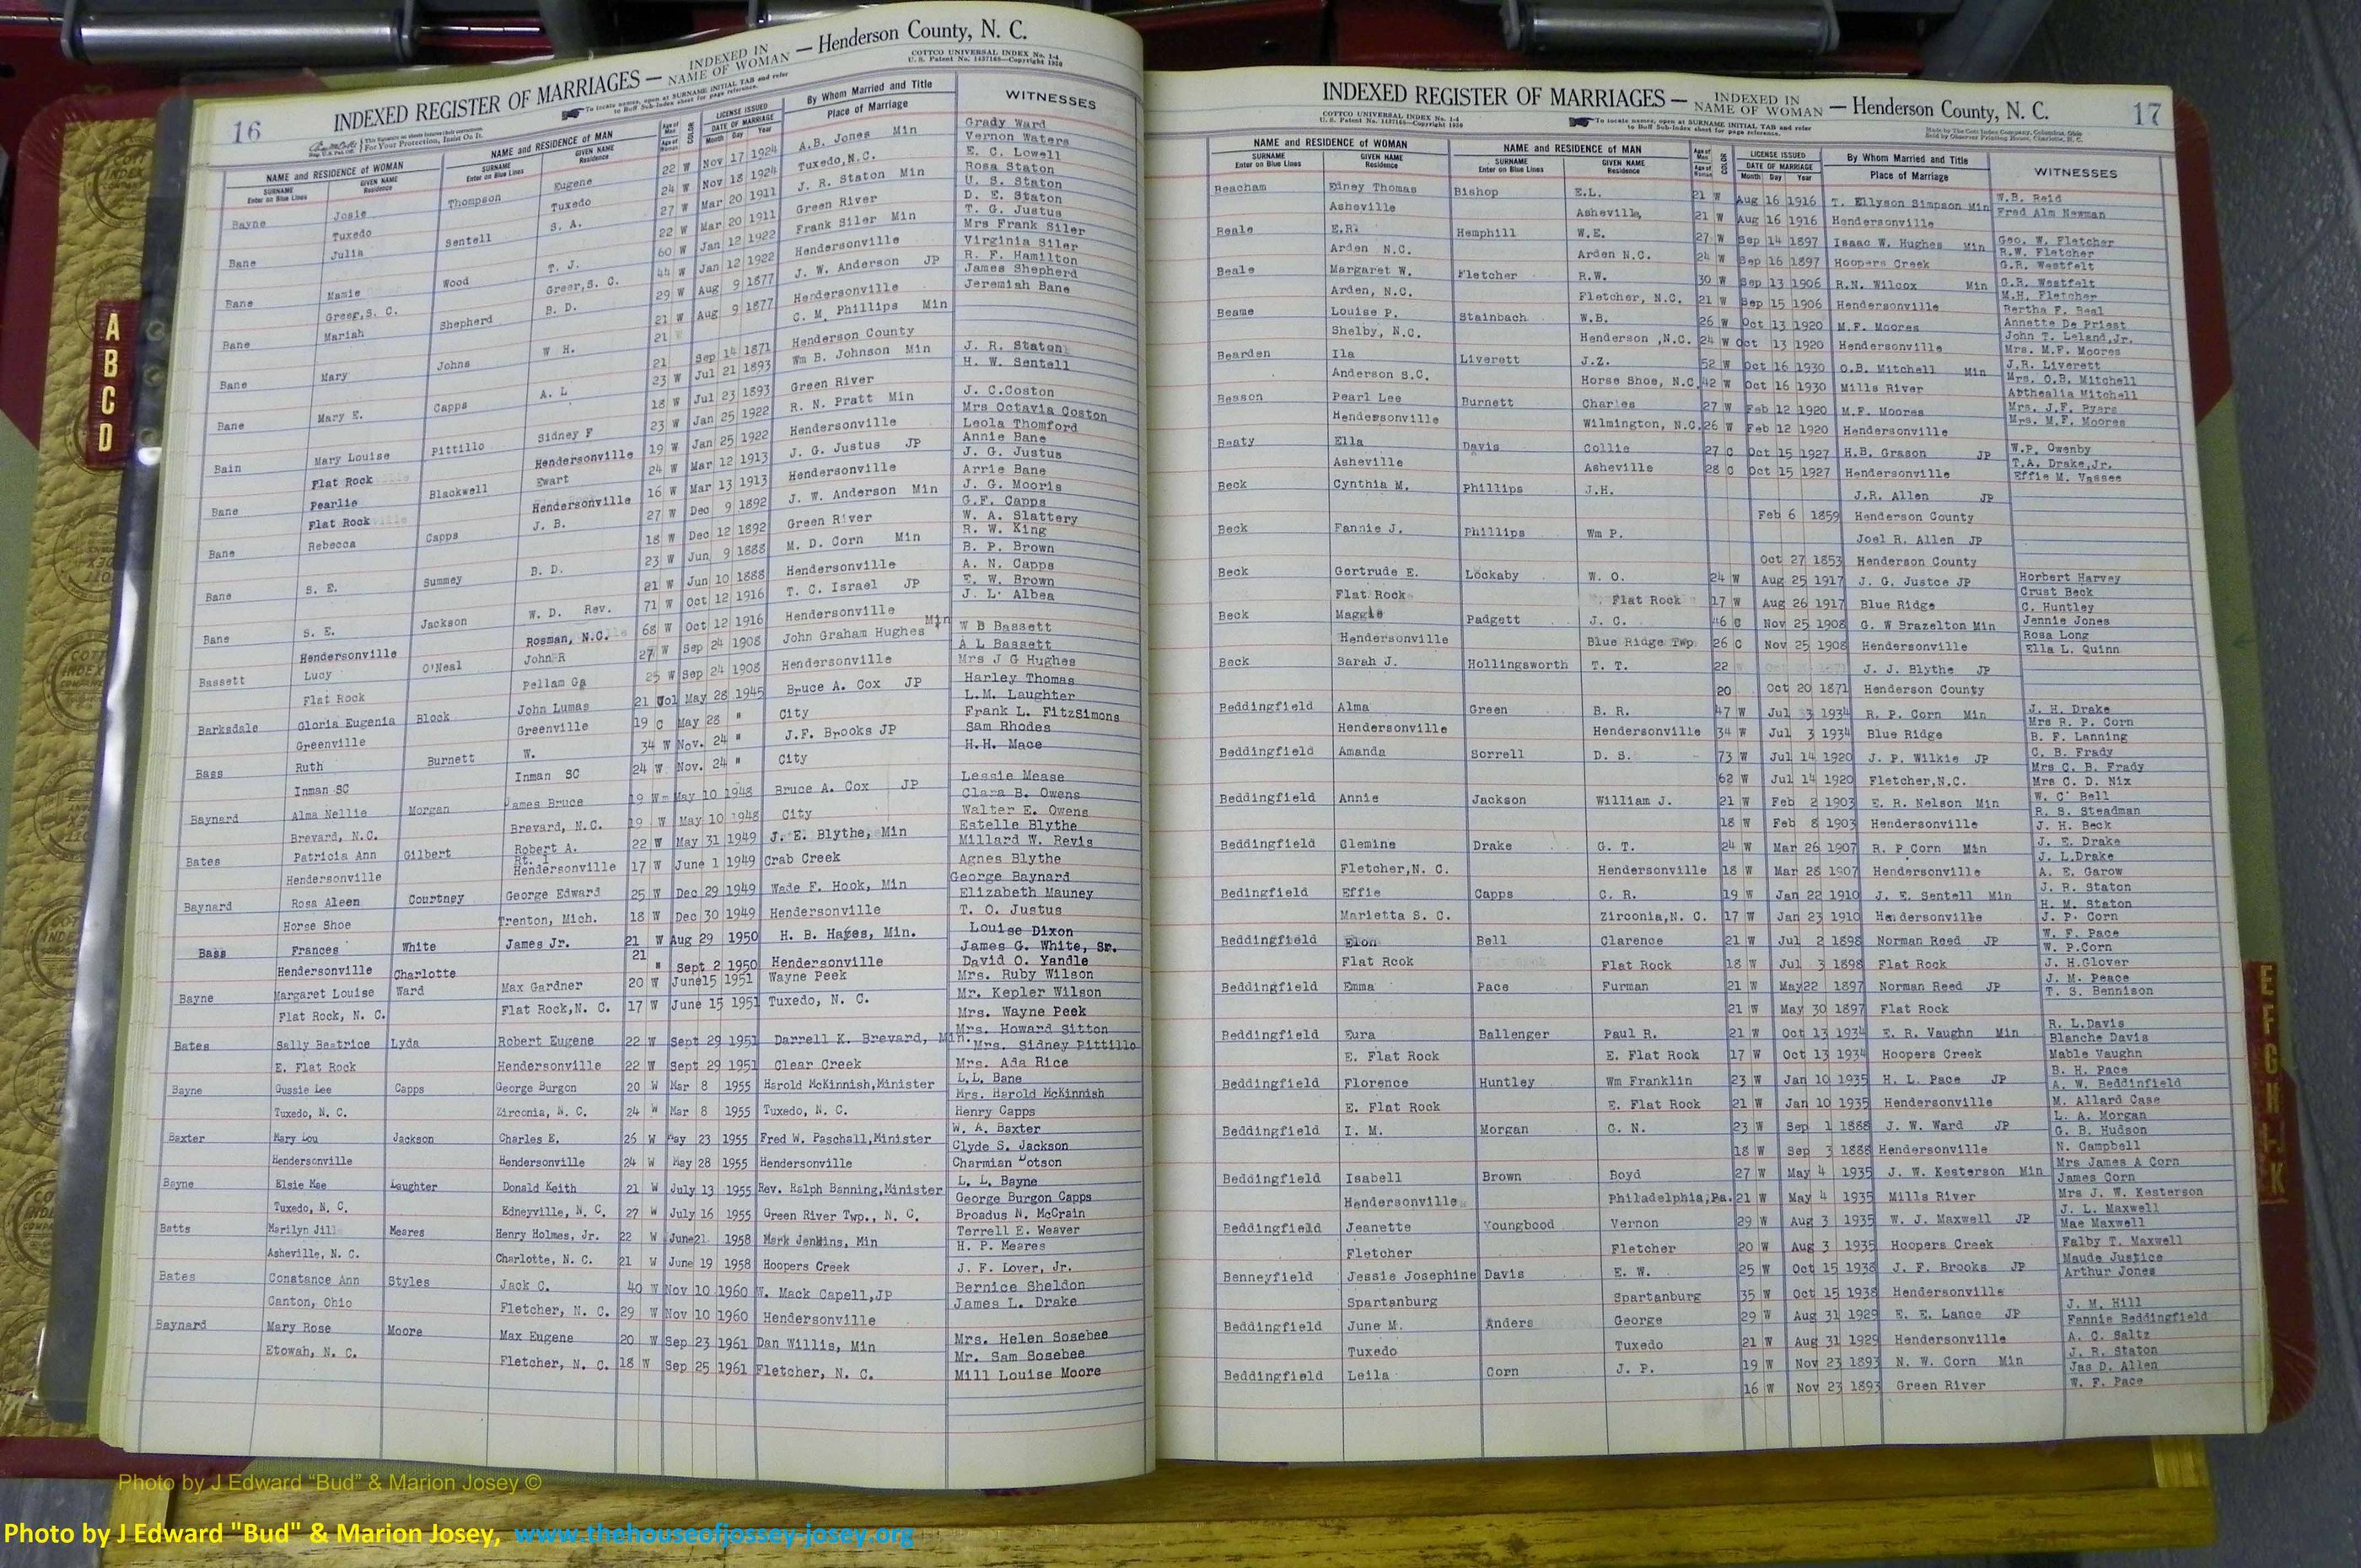 16
INDEXED REGISTER OF MARRIAGES — INDEXED IN NAME OF WOMAN — Henderson County, N. C.
COTTCO UNIVERSAL INDEX No. 1-4
U. S. Patent No. 1437165—Copyright 1930
To locate names, open at SURNAME INITIAL TAB and refer
to Buff Sub-Index sheet for page reference.
For Your Protection, Insist On It.
NAME and RESIDENCE of WOMAN NAME and RESIDENCE of MAN Age of Man COLOR LICENSE ISSUED By Whom Married and Title WITNESSES
SURNAME Enter on Blue Lines GIVEN NAME Residence SURNAME Enter on Blue Lines GIVEN NAME Residence Age of Woman DATE OF MARRIAGE Month Day Year Place of Marriage
Bayne Josie Thompson Eugene 22 W Nov 17 1924 A.B. Jones Min Grady Ward
Vernon Waters
Tuxedo Tuxedo 24 W Nov 18 1924 Tuxedo,N.C. E. C. Lowell
Bane Julia Sentell S. A. 27 W Mar 20 1911 J. R. Staton Min Rosa Staton
U. S. Staton
22 W Mar 20 1911 Green River D. E. Staton
Bane Mamie Wood T. J. 60 W Jan 12 1922 Frank Siler Min T. G. Justus
Mrs Frank Siler
Greer,S. C. Greer,S. C. 44 W Jan 12 1922 Hendersonville Virginia Siler
Bane Mariah Shepherd B. D. 29 W Aug 9 1877 J. W. Anderson JP R. F. Hamilton
James Shepherd
21 W Aug 9 1877 Hendersonville Jeremiah Bane
Bane Mary Johns W H. 21 C. M. Phillips Min
21 Sep 14 1871 Henderson County
Bane Mary E. Capps A. L 23 W Jul 21 1893 Wm B. Johnson Min J. R. Staton
H. W. Sentell
18 W Jul 23 1893 Green River
Bain Mary Louise Pittillo Sidney F 23 W Jan 25 1922 R. N. Pratt Min J. C.Coston
Mrs Octavia Coston
Flat Rock Hendersonville 19 W Jan 25 1922 Hendersonville Leola Thomford
Bane Pearlie Blackwell Ewart 24 W Mar 12 1913 J. G. Justus JP Annie Bane
J. G. Justus
Flat Rock Hendersonville 16 W Mar 13 1913 Hendersonville Arrie Bane
Bane Rebecca Capps J. B. 27 W Dec 9 1892 J. W. Anderson Min J. G. Mooris
G.F. Capps
18 W Dec 12 1892 Green River W. A. Slattery
Bane S. E. Summey B. D. 23 W Jun 9 1888 M. D. Corn Min R. W. King
B. P. Brown
21 W Jun 10 1888 Hendersonville A. N. Capps
Bane S. E. Jackson W. D. Rev. 71 W Oct 12 1916 T. C. Israel JP E. W. Brown
J. L. Albea
Hendersonville Rosman, N.C. 68 W Oct 12 1916 Hendersonville
Bassett Lucy O'Neal John R 27 W Sep 24 1908 John Graham Hughes Min W B Bassett
A L Bassett
Flat Rock Pellam Ga 25 W Sep 24 1908 Hendersonville Mrs J G Hughes
Barksdale Gloria Eugenia Block John Lumas 21 Col May 28 1945 Bruce A. Cox JP Harley Thomas
L.M. Laughter
Greenville Greenville 19 C May 28 " City Frank L. FitzSimons
Bass Ruth Burnett W. 34 W Nov. 24 " J.F. Brooks JP Sam Rhodes
H.H. Mace
Inman SC Inman SC 24 W Nov. 24 " City
Baynard Alma Nellie Morgan James Bruce 19 W May 10 1948 Bruce A. Cox JP Lessie Mease
Clara B. Owens
Brevard, N.C. Brevard, N.C. 19 W May 10 1948 City Walter E. Owens
Bates Patricia Ann Gilbert Robert A. 22 W May 31 1949 J. E. Blythe, Min Estelle Blythe
Rt. 1 Millard W. Revis
Hendersonville Hendersonville 17 W June 1 1949 Crab Creek Agnes Blythe
Baynard Rosa Aleen Courtney George Edward 25 W Dec 29 1949 Wade F. Hook, Min George Baynard
Elizabeth Mauney
Horse Shoe Trenton, Mich. 18 W Dec 30 1949 Hendersonville T. O. Justus
Bass Frances White James Jr. 21 W Aug 29 1950 H. B. Hayes, Min. Louise Dixon
James G. White, Sr.
Hendersonville 21 " Sept 2 1950 Hendersonville David O. Yandle
Bayne Margaret Louise Charlotte Ward Max Gardner 20 W June15 1951 Wayne Peek Mrs. Ruby Wilson
Mr. Kepler Wilson
Flat Rock, N. C. Flat Rock,N. C. 17 W June 15 1951 Tuxedo, N. C. Mrs. Wayne Peek
Bates Sally Beatrice Lyda Robert Eugene 22 W Sept 29 1951 Darrell K. Brevard, Min. Mrs. Howard Sitton
Mrs. Sidney Pittillo
E. Flat Rock Hendersonville 22 W Sept 29 1951 Clear Creek Mrs. Ada Rice
Bayne Gussie Lee Capps George Burgon 20 W Mar 8 1955 Harold McKinnish,Minister L.L. Bane
Mrs. Harold McKinnish
Tuxedo, N. C. Zirconia, N. C. 24 W Mar 8 1955 Tuxedo, N. C. Henry Capps
Baxter Mary Lou Jackson Charles E. 25 W May 23 1955 Fred W. Paschall,Minister W. A. Baxter
Clyde S. Jackson
Hendersonville Hendersonville 24 W May 28 1955 Hendersonville Charmian Dotson
Bayne Elsie Mae Laughter Donald Keith 21 W July 13 1955 Rev. Ralph Banning,Minister L. L. Bayne
George Burgon Capps
Tuxedo, N. C. Edneyville, N. C. 27 W July 16 1955 Green River Twp., N. C. Broadus N. McCrain
Batts Marilyn Jill Meares Henry Holmes, Jr. 22 W June21 1958 Mark Jenkins, Min Terrell E. Weaver
H. P. Meares
Asheville, N. C. Charlotte, N. C. 21 W June 19 1958 Hoopers Creek J. F. Lover, Jr.
Bates Constance Ann Styles Jack C. 40 W Nov 10 1960 W. Mack Capell,JP Bernice Sheldon
James L. Drake
Canton, Ohio Fletcher, N. C. 29 W Nov 10 1960 Hendersonville
Baynard Mary Rose Moore Max Eugene 20 W Sep 23 1961 Dan Willis, Min Mrs. Helen Sosebee
Mr. Sam Sosebee
Etowah, N. C. Fletcher, N. C. 18 W Sep 25 1961 Fletcher, N. C. Mill Louise Moore
INDEXED REGISTER OF MARRIAGES — INDEXED IN NAME OF WOMAN — Henderson County, N. C.
17
COTTCO UNIVERSAL INDEX No. 1-4
U. S. Patent No. 1437165—Copyright 1930
To locate names, open at SURNAME INITIAL TAB and refer
to Buff Sub-Index sheet for page reference.
Made by The Cott Index Company, Columbus, Ohio
Sold by Observer Printing House, Charlotte, N. C.
NAME and RESIDENCE of WOMAN NAME and RESIDENCE of MAN Age of Man COLOR LICENSE ISSUED By Whom Married and Title WITNESSES
SURNAME Enter on Blue Lines GIVEN NAME Residence SURNAME Enter on Blue Lines GIVEN NAME Residence Age of Woman DATE OF MARRIAGE Month Day Year Place of Marriage
Beacham Edney Thomas Bishop E.L. 21 W Aug 16 1916 T. Ellyson Simpson Min W.B. Reid
Fred Alm Newman
Asheville Asheville, 21 W Aug 16 1916 Hendersonville
Beale E.R. Hemphill W.E. 27 W Sep 14 1897 Isaac W. Hughes Min Geo. W. Fletcher
R.W. Fletcher
Arden N.C. Arden N.C. 24 W Sep 16 1897 Hoopers Creek G.R. Westfelt
Beale Margaret W. Fletcher R.W. 30 W Sep 13 1906 R.N. Wilcox Min G.R. Westfelt
M.H. Fletcher
Arden, N.C. Fletcher, N.C. 21 W Sep 15 1906 Hendersonville Bertha F. Beal
Beame Louise P. Stainbach W.B. 26 W Oct 13 1920 M.F. Moores Annette De Priest
John T. Leland,Jr.
Shelby, N.C. Henderson ,N.C. 24 W Oct 13 1920 Hendersonville Mrs. M.F. Moores
Bearden Ila Liverett J.Z. 52 W Oct 16 1930 O.B. Mitchell Min J.R. Liverett
Mrs. O.B. Mitchell
Anderson S.C. Horse Shoe, N.C. 42 W Oct 16 1930 Mills River Abthealia Mitchell
Beason Pearl Lee Burnett Charles 27 W Feb 12 1920 M.F. Moores Mrs. J.F. Byers
Mrs. M.F. Moores
Hendersonville Wilmington, N.C. 26 W Feb 12 1920 Hendersonville
Beaty Ella Davis Collie 27 C Oct 15 1927 H.B. Grason JP W.P. Owenby
T.A. Drake,Jr.
Asheville Asheville 28 C Oct 15 1927 Hendersonville Effie M. Vassee
Beck Cynthia M. Phillips J.H. J.R. Allen JP
Feb 6 1859 Henderson County
Beck Fannie J. Phillips Wm P. Joel R. Allen JP
Oct 27 1853 Henderson County
Beck Gertrude E. Lockaby W. O. 24 W Aug 25 1917 J. G. Justce JP Horbert Harvey
Crust Beck
Flat Rock Flat Rock 17 W Aug 26 1917 Blue Ridge C. Huntley
Beck Maggie Padgett J. C. 46 C Nov 25 1908 G. W Brazelton Min Jennie Jones
Rosa Long
Hendersonville Blue Ridge Twp. 26 C Nov 25 1908 Hendersonville Ella L. Quinn
Beck Sarah J. Hollingsworth T. T. 22 J. J. Blythe JP
20 Oct 20 1871 Henderson County
Beddingfield Alma Green B. R. 47 W Jul 3 1934 R. P. Corn Min J. H. Drake
Mrs R. P. Corn
Hendersonville Hendersonville 34 W Jul 3 1934 Blue Ridge B. F. Lanning
Beddingfield Amanda Sorrell D. S. 73 W Jul 14 1920 J. P. Wilkie JP C. B. Frady
Mrs C. B. Frady
62 W Jul 14 1920 Fletcher,N.C. Mrs C. D. Nix
Beddingfield Annie Jackson William J. 21 W Feb 2 1903 E. R. Nelson Min W. C. Bell
R. S. Steadman
18 W Feb 8 1903 Hendersonville J. H. Beck
Beddingfield Clemine Drake G. T. 24 W Mar 26 1907 R. P Corn Min J. E. Drake
J. L.Drake
Fletcher,N. C. Hendersonville 18 W Mar 28 1907 Hendersonville A. E. Garow
Bedingfield Effie Capps C. R. 19 W Jan 22 1910 J. E. Sentell Min J. R. Staton
H. M. Staton
Marietta S. C. Zirconia,N. C. 17 W Jan 23 1910 Hendersonville J. P. Corn
Beddingfield Elon Bell Clarence 21 W Jul 2 1898 Norman Reed JP W. F. Pace
W. P.Corn
Flat Rock Flat Rock 18 W Jul 3 1898 Flat Rock J. H.Glover
Beddingfield Emma Pace Furman 21 W May22 1897 Norman Reed JP J. M. Peace
T. S. Bennison
21 W May 30 1897 Flat Rock
Beddingfield Eura Ballenger Paul R. 21 W Oct 13 1934 E. R. Vaughn Min R. L.Davis
Blanche Davis
E. Flat Rock E. Flat Rock 17 W Oct 13 1934 Hoopers Creek Mable Vaughn
Beddingfield Florence Huntley Wm Franklin 23 W Jan 10 1935 H. L. Pace JP B. H. Pace
A. W. Beddinfield
E. Flat Rock E. Flat Rock 21 W Jan 10 1935 Hendersonville M. Allard Case
Beddingfield I. M. Morgan G. N. 23 W Sep 1 1888 J. W. Ward JP L. A. Morgan
G. B. Hudson
18 W Sep 3 1888 Hendersonville N. Campbell
Beddingfield Isabell Brown Boyd 27 W May 4 1935 J. W. Kesterson Min Mrs James A Corn
James Corn
Hendersonville Philadelphia,Pa. 21 W May 4 1935 Mills River Mrs J. W. Kesterson
Beddingfield Jeanette Youngbood Vernon 29 W Aug 3 1935 W. J. Maxwell JP J. L. Maxwell
Mae Maxwell
Fletcher Fletcher 20 W Aug 3 1935 Hoopers Creek Falby T. Maxwell
Benneyfield Jessie Josephine Davis E. W. 25 W Oct 15 1938 J. F. Brooks JP Maude Justice
Arthur Jones
Spartanburg Spartanburg 35 W Oct 15 1938 Hendersonville
Beddingfield June M. Anders George 29 W Aug 31 1929 E. E. Lance JP J. M. Hill
Fannie Beddingfield
Tuxedo Tuxedo 21 W Aug 31 1929 Hendersonville A. C. Saltz
Beddingfield Leila Corn J. P. 19 W Nov 23 1893 N. W. Corn Min J. R. Staton
Jas D. Allen
16 W Nov 23 1893 Green River W. F. Pace
A
B
C
D
E
F
G
H
K
Photo by J Edward "Bud" & Marion Josey ©
Photo by J Edward "Bud" & Marion Josey, www.thehouseofjossey-josey.org